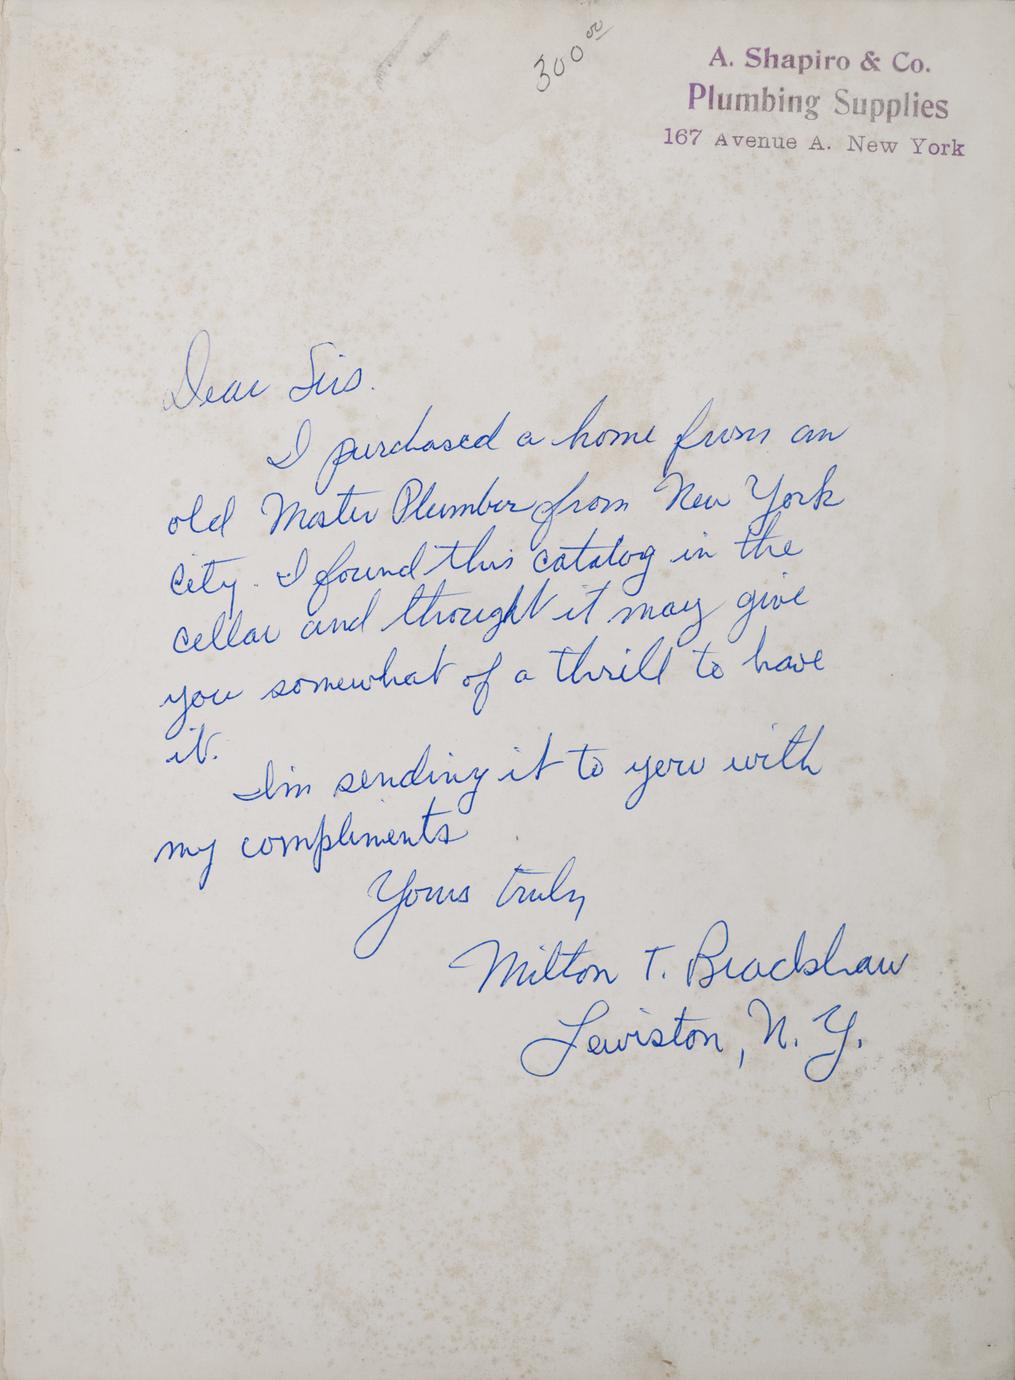 300.00
A. Shapiro & Co.
Plumbing Supplies
167 Avenue A. New York
Dear Sirs.
I purchased a home from an
old Master Plumber from New York
City. I found this catalog in the
cellar and thought it may give
you somewhat of a thrill to have
it.
I'm sending it to you with
my compliments
Yours truly
Milton T. Bradshaw
Lewiston, N. Y.